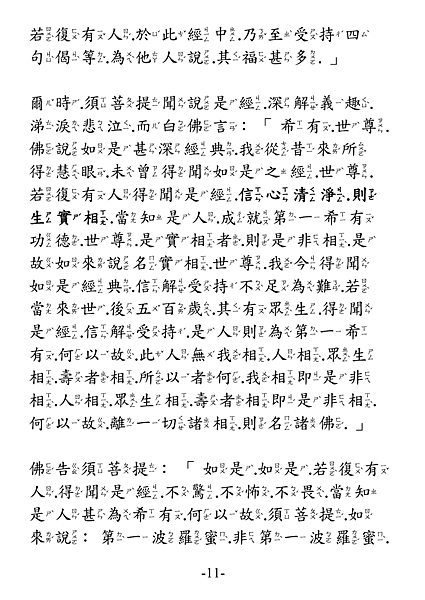 若復有人.於此經中.乃至受持四
句偈等.為他人說.其福甚多.」
爾時.須菩提聞說是經.深解義趣.
涕淚悲泣.而白佛言：「希有.世尊.
佛說如是甚深經典.我從昔來所
得慧眼.未曾得聞如是之經.世尊.
若復有人得聞是經.信心清淨.則
生實相.當知是人.成就第一希有
功德.世尊.是實相者.則是非相.是
故如來說名實相.世尊.我今得聞
如是經典.信解受持不足為難.若
當來世.後五百歲.其有眾生.得聞
是經.信解受持.是人則為第一希
有.何以故.此人無我相.人相.眾生
相.壽者相.所以者何.我相即是非
相.人相.眾生相.壽者相即是非相.
何以故.離一切諸相.則名諸佛.」
佛告須菩提：「如是.如是.若復有
人.得聞是經.不驚.不怖.不畏.當知
是人甚為希有.何以故.須菩提.如
來說：第一波羅蜜.非第一波羅蜜.
-11-